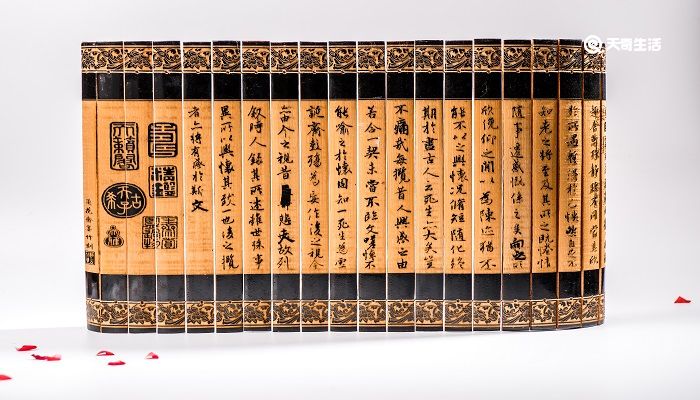 天奇生活
趣舍萬殊靜躁不同當其欣
於所遇蹔得於己怏然自足不
知老之將至及其所之既惓情
隨事遷感慨係之矣向之所
欣俛仰之間以為陳迹猶不
能不以之興懷況脩短隨化終
期於盡古人云死生亦大矣豈
不痛哉每攬昔人興感之由
若合一契未嘗不臨文嗟悼不
能喻之於懷固知一死生為虛
誕齊彭殤為妄作後之視今
亦由今之視昔悲夫故列
敘時人錄其所述雖世殊事
異所以興懷其致一也後之攬
者亦將有感於斯文